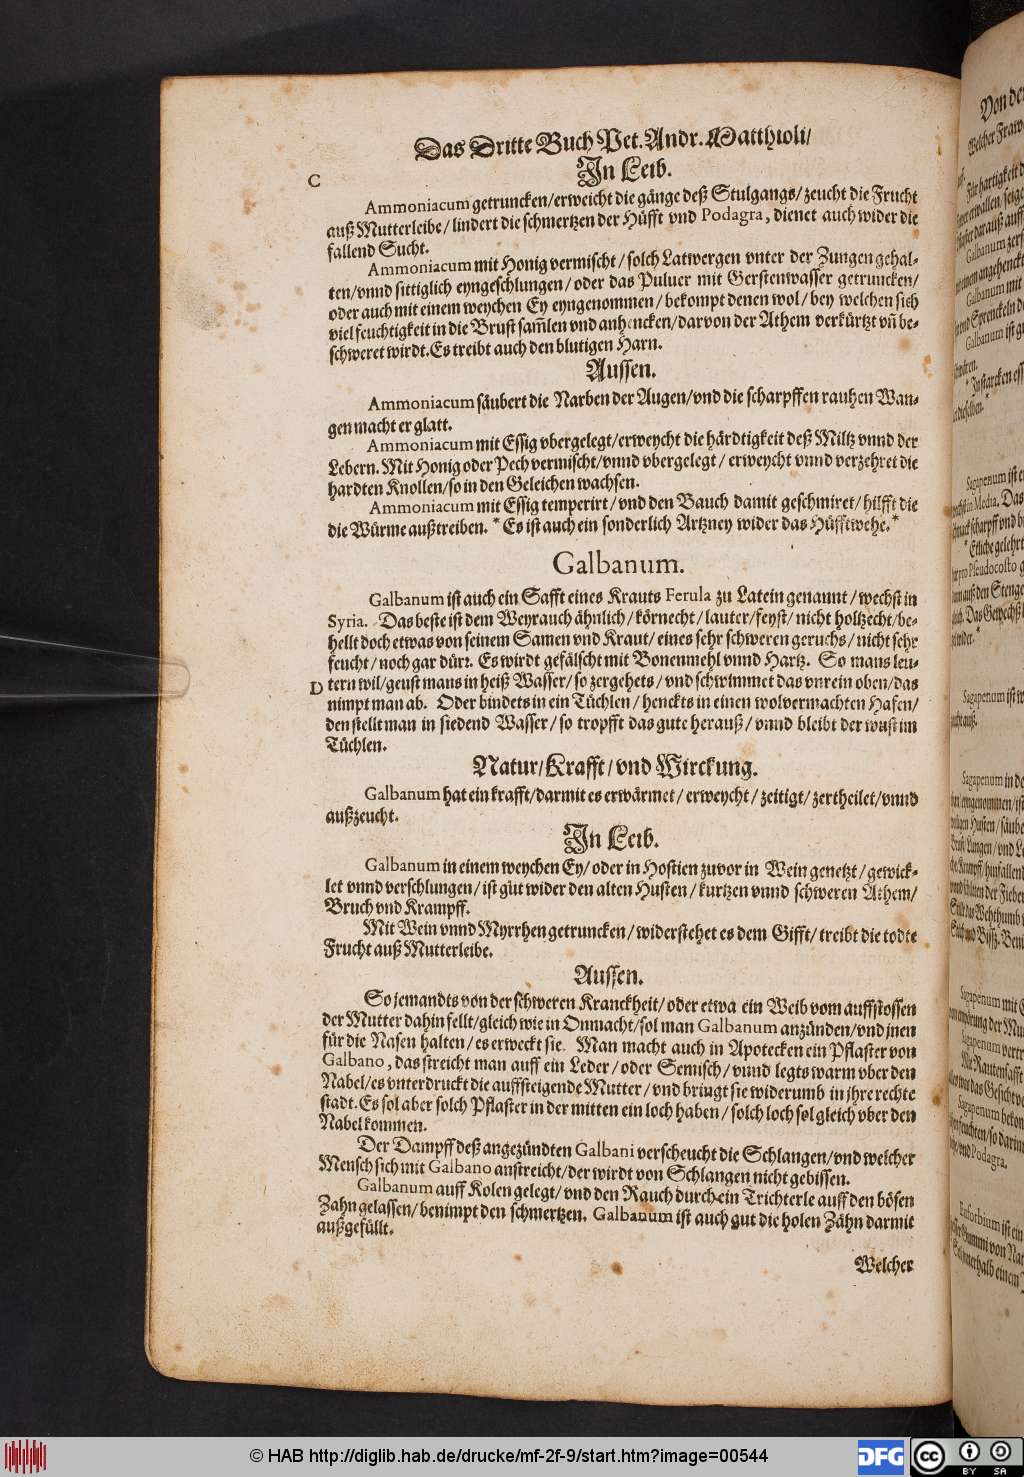 Das Dritte Buch Pet. Andr. Matthioli/
In Leib.
C
Ammoniacum getruncken/erweicht die gänge deß Stulgangs/ zeucht die Frucht
auß Mutterleibe/ lindert die schmertzen der Hüfft vnd Podagra, dienet auch wider die
fallend Sucht.
Ammoniacum mit Honig vermischt/ solch Latwergen vnter der Zungen gehal-
ten/vnnd sittiglich eyngeschlungen/ oder das Puluer mit Gerstenwasser getruncken/
oder auch mit einem weychen Ey eyngenommen/ bekompt denen wol/ bey welchen sich
viel feuchtigkeit in die Brust sam̃len vnd anhencken/darvon der Athem verkürtzt vñ be-
schweret wirdt. Es treibt auch den blutigen Harn.
Aussen.
Ammoniacum säubert die Narben der Augen/vnd die scharpffen rauhen Wan-
gen macht er glatt.
Ammoniacum mit Essig vbergelegt/erweycht die härdtigkeit deß Miltz vnnd der
Lebern. Mit Honig oder Pech vermischt/vnnd vbergelegt/ erweycht vnnd verzehret die
hardten Knollen/so in den Geleichen wachsen.
Ammoniacum mit Essig temperirt/ vnd den Bauch damit geschmiret/ hilfft die
die Würme außtreiben. * Es ist auch ein sonderlich Artzney wider das Hüfftwehe.*
Galbanum.
Galbanum ist auch ein Safft eines Krauts Ferula zu Latein genannt/ wechst in
Syria. Das beste ist dem Weyrauch ähnlich/ körnecht/ lauter/ feyst/ nicht holtzecht/be-
hellt doch etwas von seinem Samen vnd Kraut/ eines sehr schweren geruchs/ nicht sehr
feucht/ noch gar dürr. Es wirdt gefälscht mit Bonenmehl vnnd Hartz. So mans leu-
D
tern wil/geust mans in heiß Wasser/ so zergehets/ vnd schwimmet das vnrein oben/das
nimpt man ab. Oder bindets in ein Tüchlen/ henckts in einen wolvermachten Hafen/
den stellt man in siedend Wasser/ so tropfft das gute herauß/ vnnd bleibt der wust im
Tüchlen.
Natur/Krafft/ vnd Wirckung.
Galbanum hat ein krafft/darmit es erwärmet/ erweycht/ zeitigt/ zertheilet/vnnd
außzeucht.
In Leib.
Galbanum in einem weychen Ey/ oder in Hostien zuvor in Wein genetzt/ gewick-
let vnnd verschlungen/ ist gut wider den alten Husten/ kurtzen vnnd schweren Athem/
Bruch vnd Krampff.
Mit Wein vnnd Myrrhen getruncken/ widerstehet es dem Gifft/ treibt die todte
Frucht auß Mutterleibe.
Aussen.
So jemandts von der schweren Kranckheit/ oder etwa ein Weib vom auffstossen
der Mutter dahin fellt/gleich wie in Onmacht/sol man Galbanum anzünden/vnd jnen
für die Nasen halten/ es erweckt sie. Man macht auch in Apotecken ein Pflaster von
Galbano, das streicht man auff ein Leder/ oder Semisch/ vnnd legts warm vber den
Nabel/es vnterdruckt die auffsteigende Mutter/ vnd bringt sie widerumb in jhre rechte
stadt. Es sol aber solch Pflaster in der mitten ein loch haben/ solch loch sol gleich vber den
Nabel kommen.
Der Dampff deß angezündten Galbani verscheucht die Schlangen/vnd welcher
Mensch sich mit Galbano anstreicht/der wirdt von Schlangen nicht gebissen.
Galbanum auff Kolen gelegt/ vnd den Rauch durch ein Trichterle auff den bösen
Zahn gelassen/ benimpt den schmertzen. Galbanum ist auch gut die holen Zähn darmit
außgefüllt.
Welcher
© HAB http://diglib.hab.de/drucke/mf-2f-9/start.htm?image=00544
DFG
cc BY SA